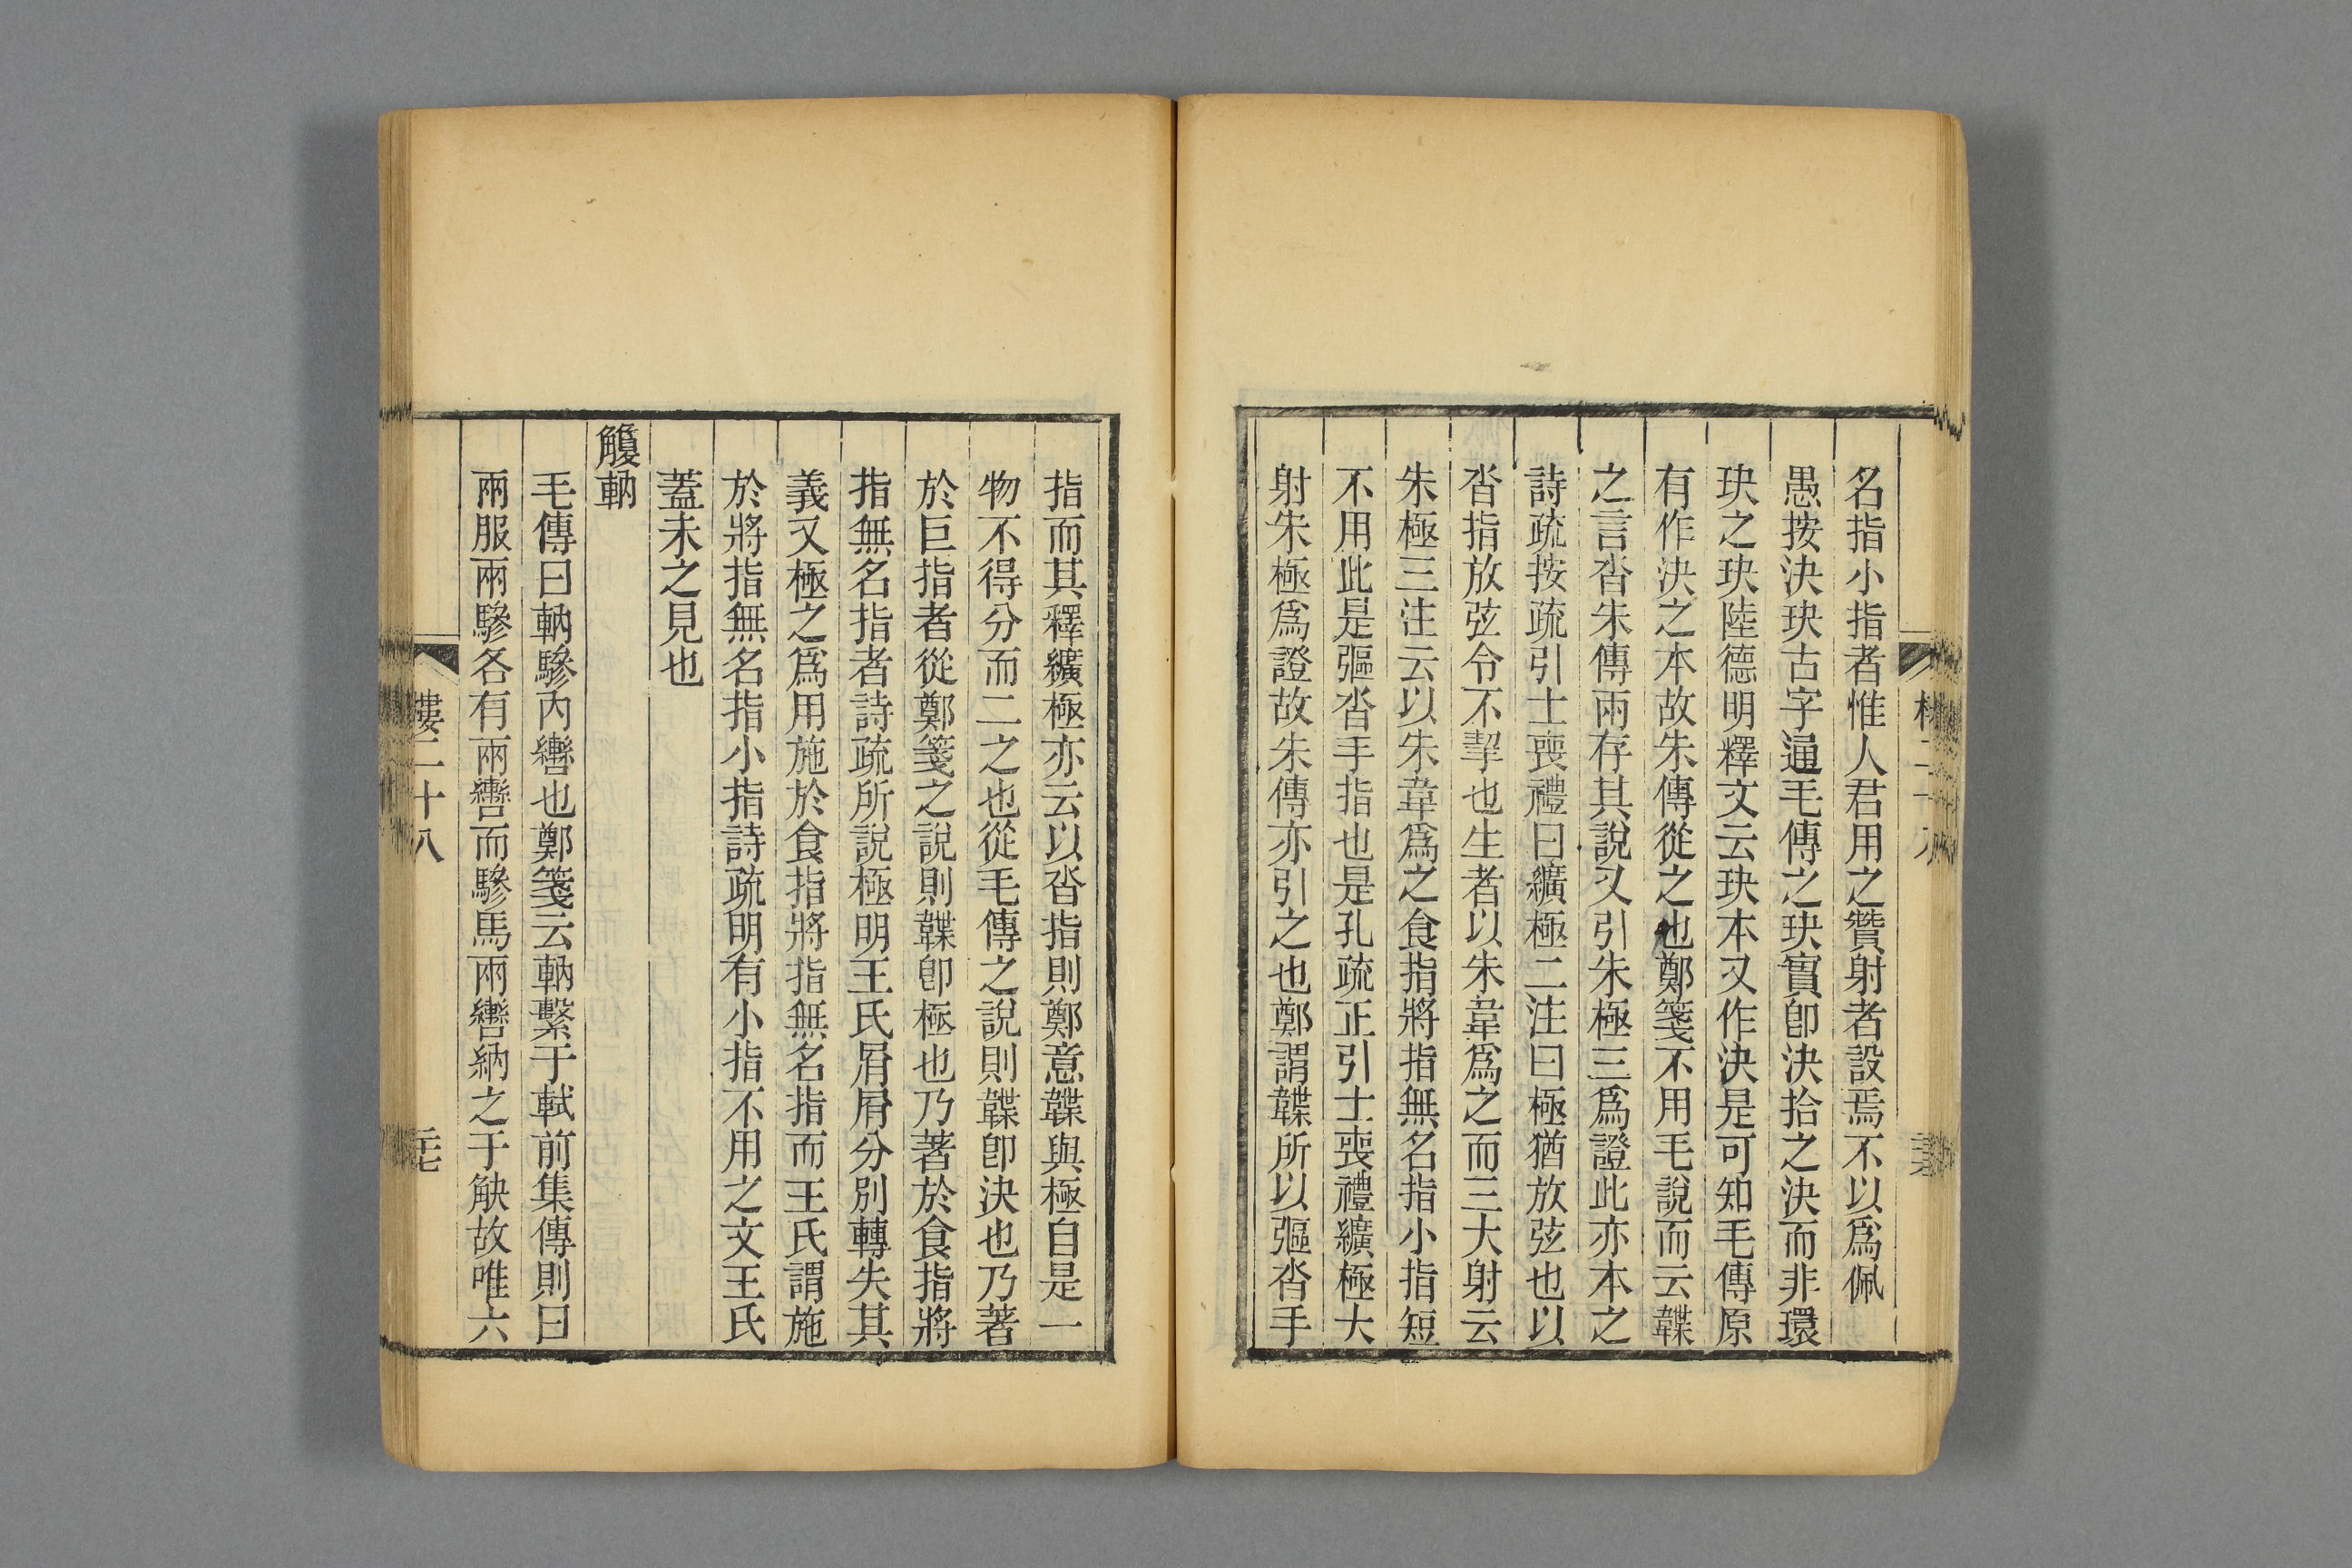 名指小指者惟人君用之贊射者設焉不以爲佩
愚按決玦古字通毛傳之玦實卽決拾之決而非環
玦之玦陸德明釋文云玦本又作決是可知毛傳原
有作決之本故朱傳從之也鄭箋不用毛說而云韘
之言沓朱傳兩存其說又引朱極三爲證此亦本之
詩疏按疏引士喪禮曰纊極二注曰極猶放弦也以
沓指放弦令不挈也生者以朱韋爲之而三大射云
朱極三注云以朱韋爲之食指將指無名指小指短
不用此是彄沓手指也是孔疏正引士喪禮纊極大
射朱極爲證故朱傳亦引之也鄭謂韘所以彄沓手
指而其釋纊極亦云以沓指則鄭意韘與極自是一
物不得分而二之也從毛傳之說則韘卽決也乃著
於巨指者從鄭箋之說則韘卽極也乃著於食指將
指無名指者詩疏所說極明王氏屑屑分別轉失其
義又極之爲用施於食指將指無名指而王氏謂施
於將指無名指小指詩疏明有小指不用之文王氏
蓋未之見也
觼軜
毛傳曰軜驂內轡也鄭箋云軜繫于軾前集傳則曰
兩服兩驂各有兩轡而驂馬兩轡納之于觖故唯六
樓二十八